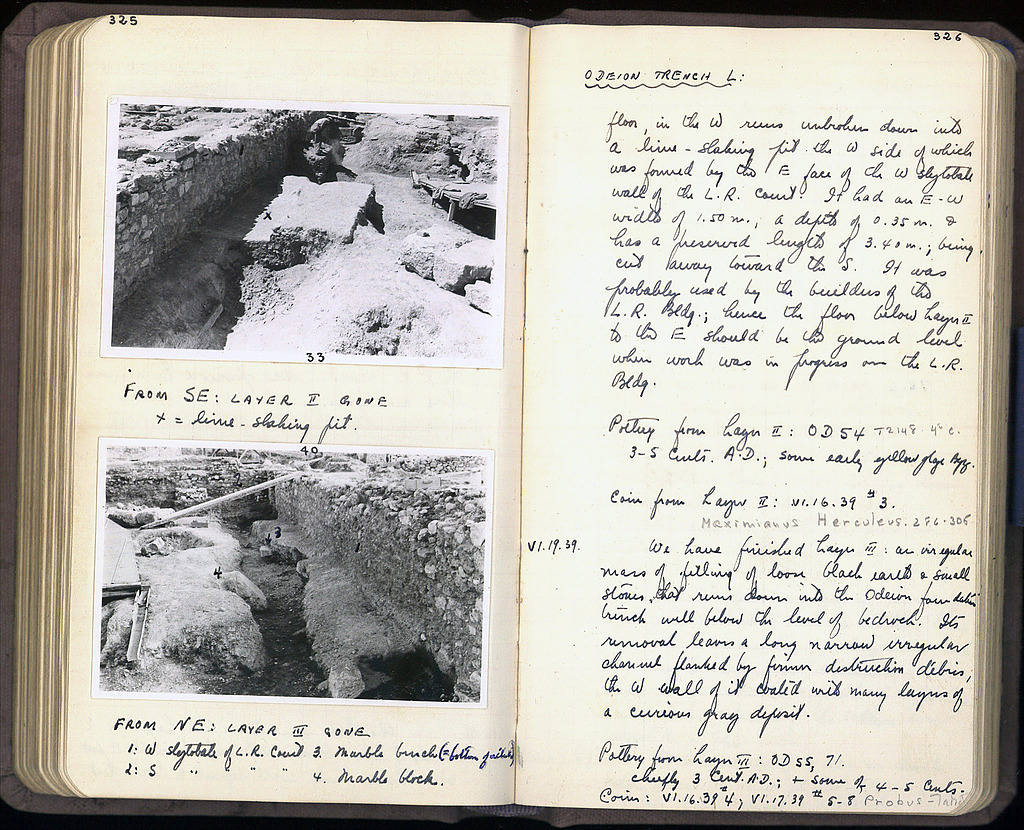 325
33
FROM SE: LAYER II GONE
x = lime-slaking pit.
40
4
FROM NE: LAYER III GONE
1: W stylobate of L.R. Court 3. Marble bench (= bottom of
2: S " " " " 4. Marble block.
326
ODEION TRENCH L:
floor, in the W runs unbroken down into
a lime-slaking pit the W side of which
was formed by the E face of the W stylobate
wall of the L.R. Court. It had an E-W
width of 1.50 m., a depth of 0.35 m. &
has a preserved length of 3.40 m.; being
cut away toward the S. It was
probably used by the builders of the
L.R. Bldg.; hence the floor below Layer II
to the E should be the ground level
when work was in progress on the L.R.
Bldg.
Pottery from Layer II: OD 54 T2148 4th c.
3-5 Cents. A.D.; some early yellow glaze Byz.
Coin from Layer II: VI.16.39 #3.
Maximianus Herculeus. 286-305
VI.19.39. We have finished Layer III: an irregular
mass of filling of loose black earth & small
stones, that runs down into the Odeion foundation
trench well below the level of bedrock. Its
removal leaves a long narrow irregular
channel flanked by firmer destruction débris,
the W wall of it coated with many layers of
a curious gray deposit.
Pottery from Layer III: OD 55, 71.
chiefly 3 Cent. A.D.; + some of 4-5 Cents.
Coins: VI.16.39 #4; VI.17.39 #5-8 Probus-